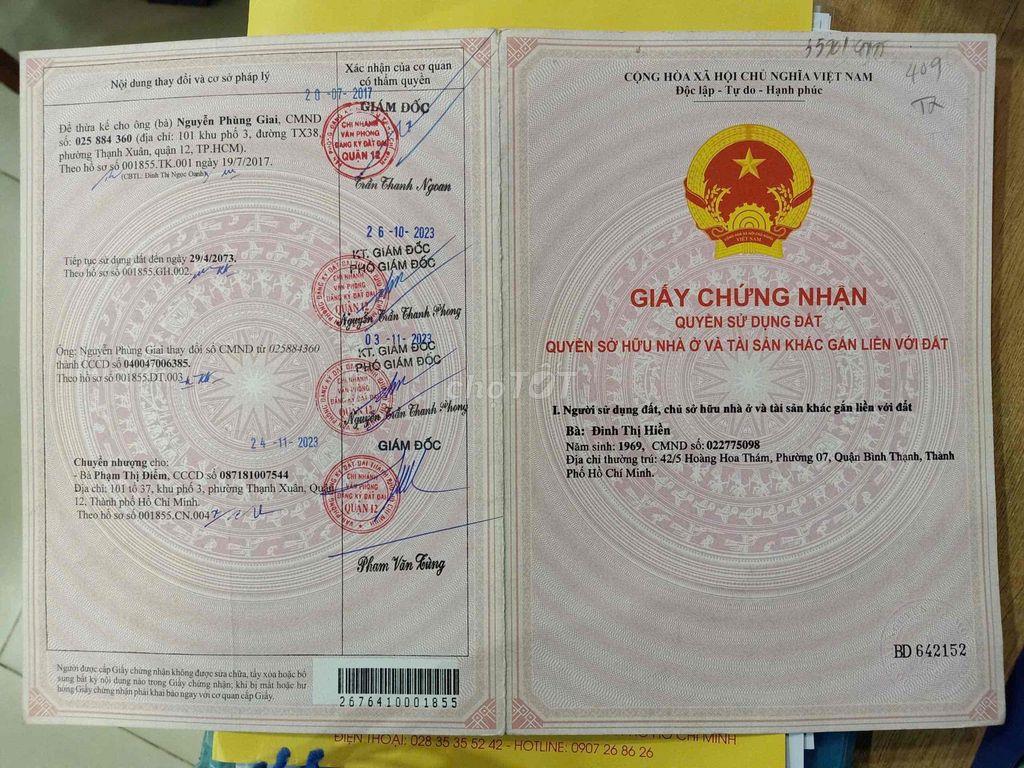 Nội dung thay đổi và cơ sở pháp lý
Xác nhận của cơ quan
có thẩm quyền
20-07-2017
GIÁM ĐỐC
Để thừa kế cho ông (bà) Nguyễn Phùng Giai, CMND
số: 025 884 360 (địa chỉ: 101 khu phố 3, đường TX38,
phường Thạnh Xuân, quận 12, TP.HCM).
Theo hồ sơ số 001855.TK.001 ngày 19/7/2017.
(CBTL: Đinh Thị Ngọc Oanh)
CHI NHÁNH
VĂN PHÒNG
ĐĂNG KÝ ĐẤT ĐAI
QUẬN 12
Trần Thanh Ngoan
26-10-2023
KT. GIÁM ĐỐC
PHÓ GIÁM ĐỐC
Tiếp tục sử dụng đất đến ngày 29/4/2073.
Theo hồ sơ số 001855.GH.002.
CHI NHÁNH
VĂN PHÒNG
ĐĂNG KÝ ĐẤT ĐAI
QUẬN 12
Nguyễn Trần Thanh Phong
03-11-2023
KT. GIÁM ĐỐC
PHÓ GIÁM ĐỐC
Ông: Nguyễn Phùng Giai thay đổi số CMND từ 025884360
thành CCCD số 040047006385.
Theo hồ sơ số 001855.DT.003
CHI NHÁNH
VĂN PHÒNG
ĐĂNG KÝ ĐẤT ĐAI
QUẬN 12
Nguyễn Trần Thanh Phong
24-11-2023
GIÁM ĐỐC
Chuyển nhượng cho:
- Bà Phạm Thị Điểm, CCCD số 087181007544
Địa chỉ: 101 tổ 37, khu phố 3, phường Thạnh Xuân, Quận
12, Thành phố Hồ Chí Minh.
Theo hồ sơ số 001855.CN.004
CHI NHÁNH
VĂN PHÒNG
ĐĂNG KÝ ĐẤT ĐAI
QUẬN 12
Phạm Văn Tùng
Người được cấp Giấy chứng nhận không được sửa chữa, tẩy xóa hoặc bổ
sung bất kỳ nội dung nào trong Giấy chứng nhận; khi bị mất hoặc hư
hỏng Giấy chứng nhận phải khai báo ngay với cơ quan cấp Giấy.
2676410001855
409
TX
CỘNG HÒA XÃ HỘI CHỦ NGHĨA VIỆT NAM
Độc lập - Tự do - Hạnh phúc
VIỆT NAM
GIẤY CHỨNG NHẬN
QUYỀN SỬ DỤNG ĐẤT
QUYỀN SỞ HỮU NHÀ Ở VÀ TÀI SẢN KHÁC GẮN LIỀN VỚI ĐẤT
I. Người sử dụng đất, chủ sở hữu nhà ở và tài sản khác gắn liền với đất
Bà: Đinh Thị Hiền
Năm sinh: 1969, CMND số: 022775098
Địa chỉ thường trú: 42/5 Hoàng Hoa Thám, Phường 07, Quận Bình Thạnh, Thành
Phố Hồ Chí Minh.
BD 642152
choTỐT
HỒ CHÍ MINH
ĐIỆN THOẠI: 028 35 35 52 42 - HOTLINE: 0907 26 86 26